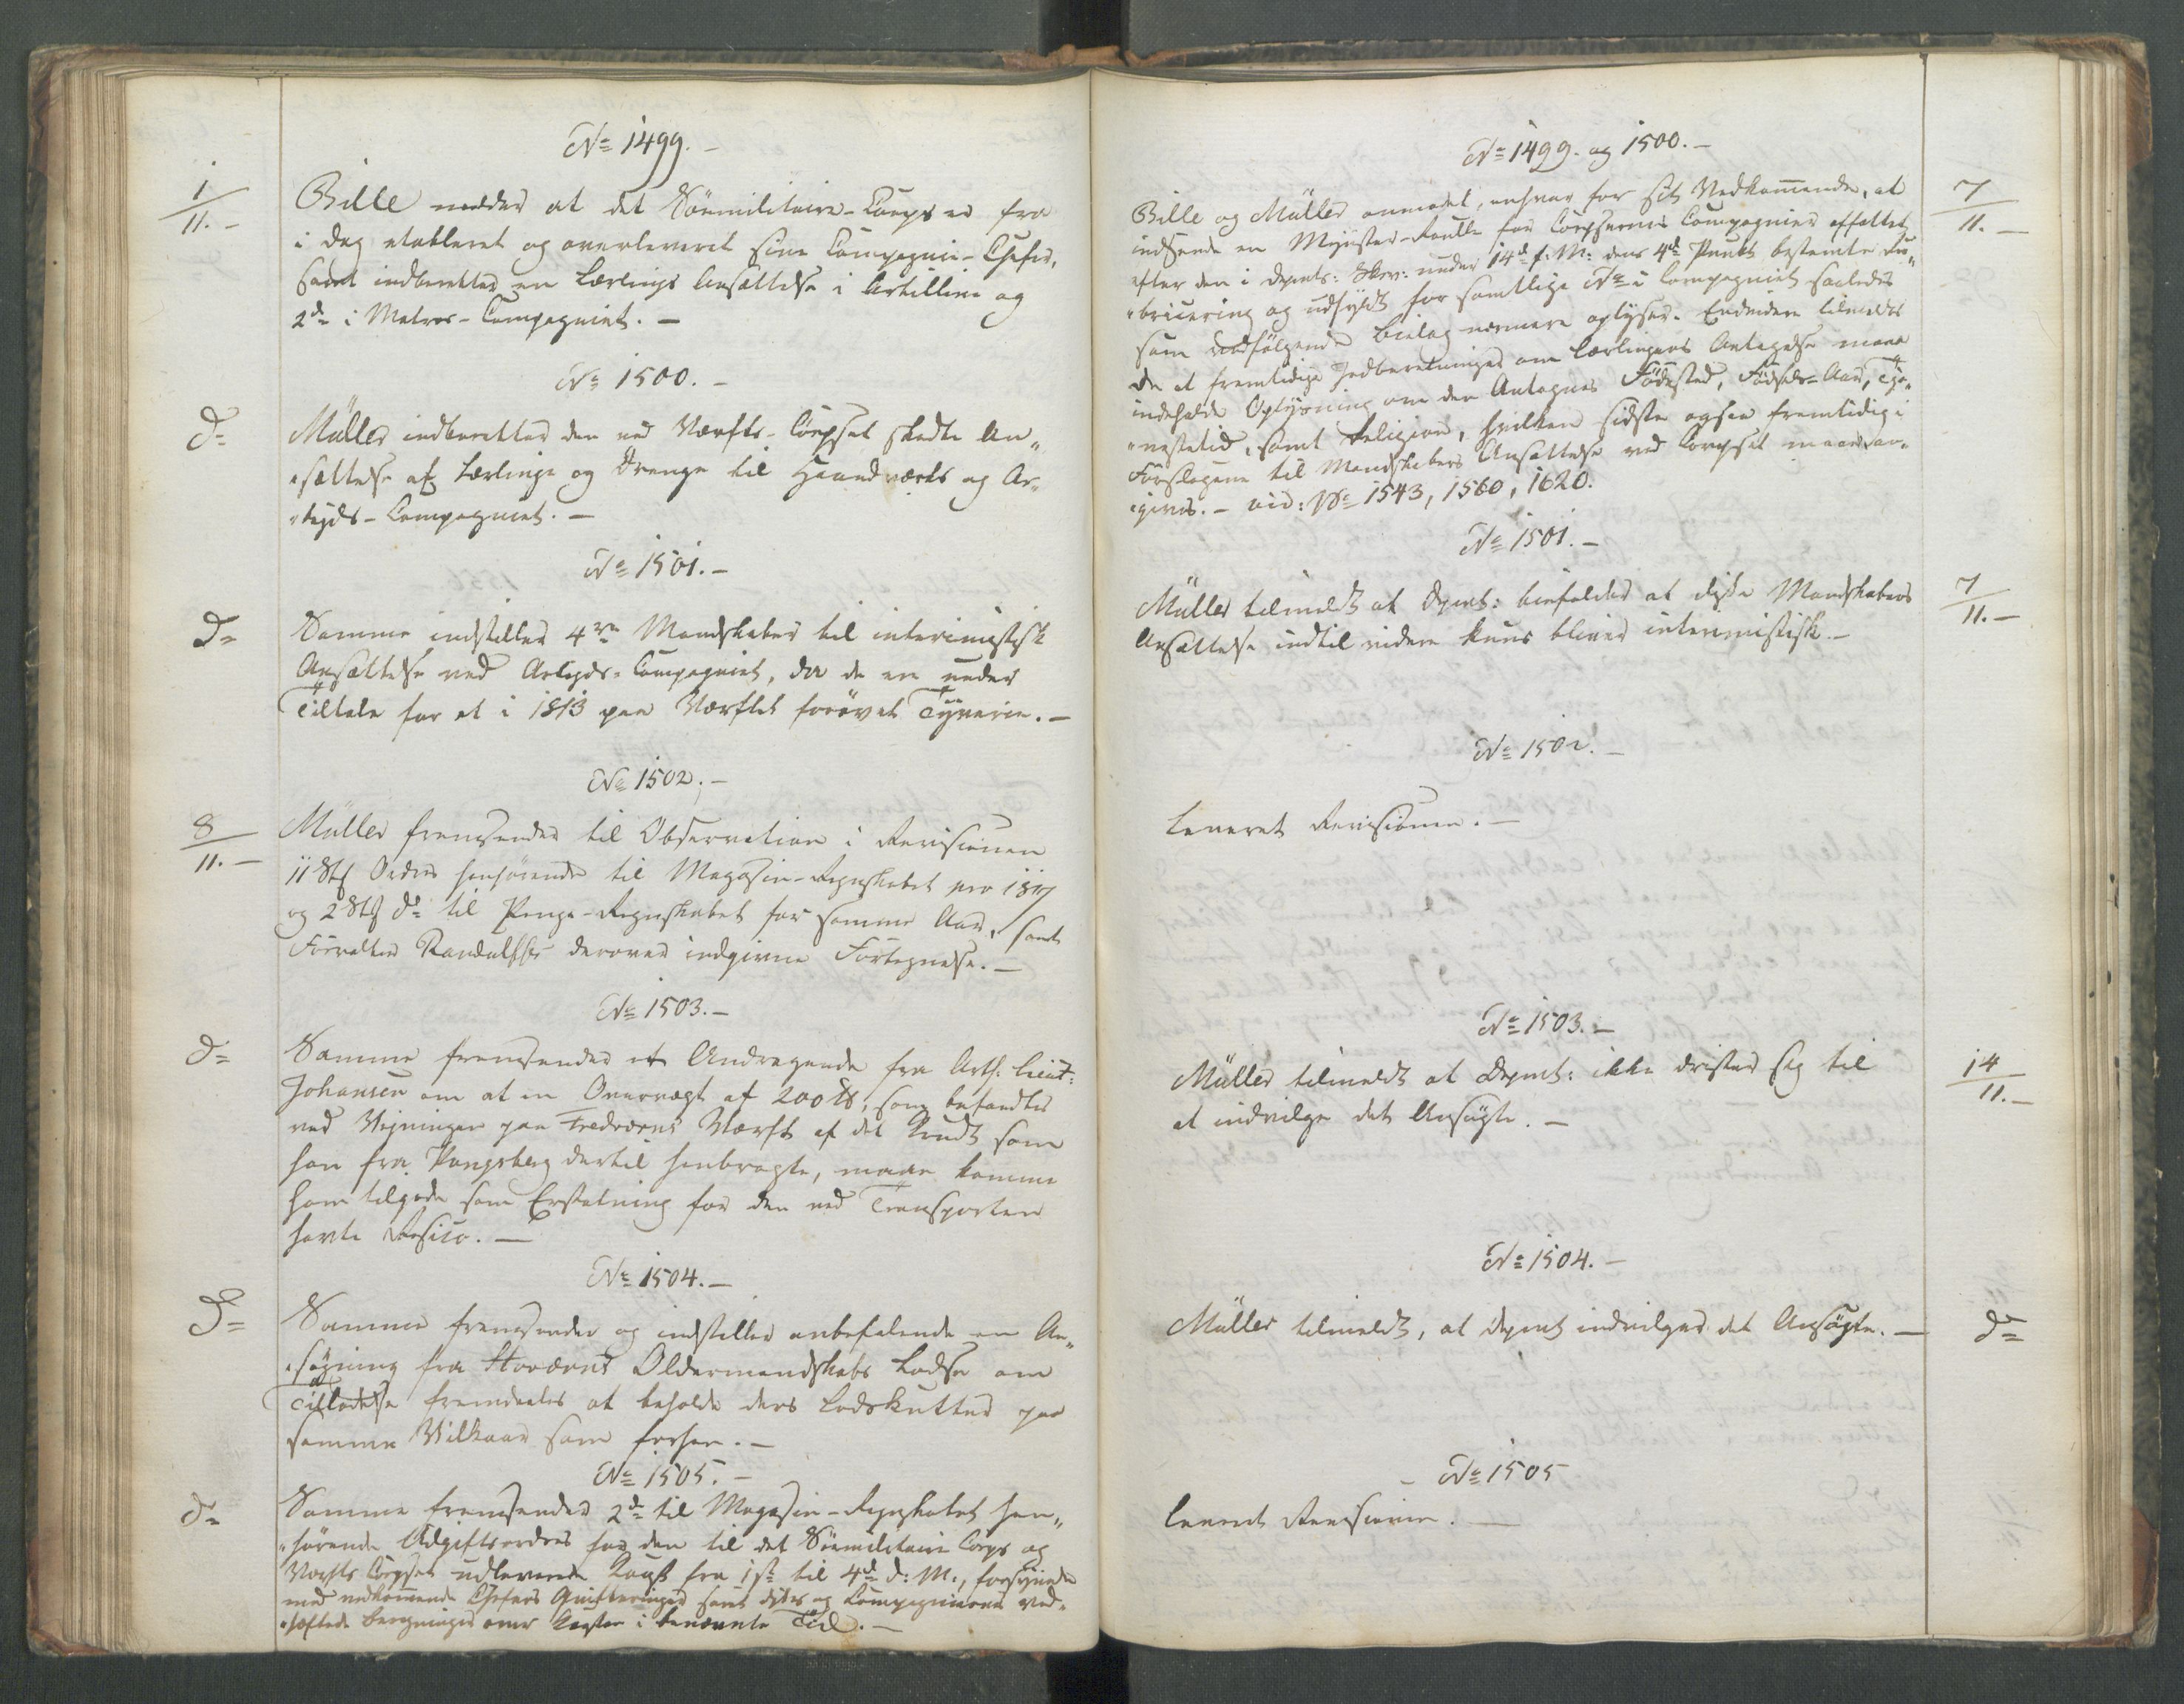 No 1499.
1/11.
Bille melder at det Söemilitaire-Corps er fra
i dag etableret og overleveret sine Compagnie-Chefer,
samt indberetter en Lærlings Ansættelse i Artillerie og
2de i Matros-Compagniet.
No 1500.
do
Müller indberetter den ved Værfts-Corpset skedte An„
„sættelse af Lærlinge og Drenge til Haandværks og Ar„
„beyds-Compagniet.
No 1501.
do
Samme indstiller 4re Mandskaber til interimistisk
Ansættelse ved Arbeyds-Compagniet, da de ere under
Tiltale for et i 1813 paa Værftet forövet Tÿverie.
No 1502.
8/11.
Müller fremsender til Observation i Revisionen
11 Stk Ordres henhörende til Magasin-Regnskabet pro 1817
og 2 Stk do til Penge-Regnskabet for samme Aar, samt
Forvalter Randulffs derover indgivne Fortegnelse.
No 1503.
do
Samme fremsender et Andragende fra Art: Lieut:
Johansen om at en Overvægt af 200 ℔, som befandtes
ved Vejningen paa Fredværns Værft af det Krudt som
han fra Kongsberg dertil henbragte, maae komme
ham tilgode som Erstatning for den ved Transporten
havte Risico.
No 1504.
do
Samme fremsender og indstiller anbefalende en An„
„sögning fra Staværns Oldermandskabs Lodse om
Tilladelse fremdeeles at beholde deres Lodskutter paa
samme Vilkaar som forhen.
No 1505.
do
Samme fremsender 2de til Magasin-Regnskabet hen„
„hörende Udgiftsordres for den til det Söemilitaire Corps og
Værfts Corpset udleverede Kost fra 1ste til 4de d: M:, forsÿnede
med vedkommende Chefers Quitteringer samt og Compagniernes ved„
„hæftede Beregninger over Kosten i benævnte Tid.
No 1499. og 1500.
7/11.
Bille og Müller anmodet, enhver for sit Vedkommende, at
indsende en Mÿnster-Rulle for Corpsernes Compagnier affattet
efter den i Depmts: Skr: under 14de f: M: dens 4de Punkt bestemte Ru„
„bricering og udfÿldt for samtlige No i Compagniet saaledes
som medfölgende Bielag nærmere oplÿser. Endvidere tilmeldt
de at fremtidige Indberetninger om Lærlingers Antagelse maae
indeholde Oplÿsning om den Antagnes Födested, Födsels-Aar, Tje„
„nestetid, samt Religion, hvilken sidste ogsaa fremtidig i
Forslagene til Mandskabers Ansættelse ved Corpset maae an„
„gives. - vid: No 1543, 1560, 1620.
No 1501.
7/11.
Müller tilmeldt at Depmt: bifalder at disse Mandskabers
Ansættelse indtil videre kuns bliver interimistisk.
No 1502.
Leveret Revisionen.
No 1503.
14/11.
Müller tilmeldt at Depmt: ikke drister sig til
at indvilge det Ansögte.
No 1504.
Müller tilmeldt, at Depmt indvilger det Ansögte.
do
No 1505
Leveret Revisionen.